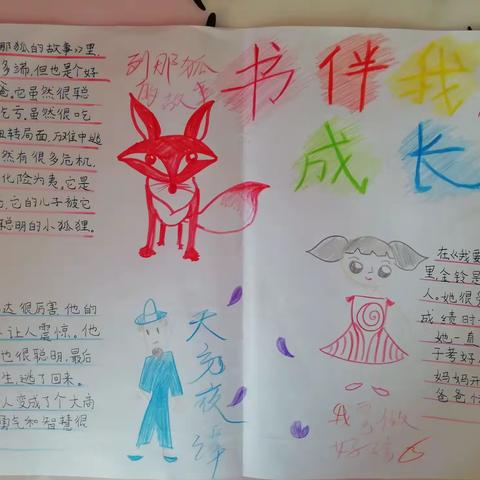 那狐的故事》里,
多端,但也是个好
爸,它虽然很聪
吃亏,虽然很吃
扭转局面,万难中逃
然有很多危机,
化险为夷,它是
它的儿子被它
聪明的小狐狸。
列那狐
的故事
书伴我
成长
达很厉害,他的
让人震惊。他
也很聪明,最后
生,逃了回来。
人变成了个大商
勇气和智慧很
天亮夜
在《我要
里,金铃是
人。她很
成绩时
她一直
子考好,
妈妈开
爸爸
我要做
好孩